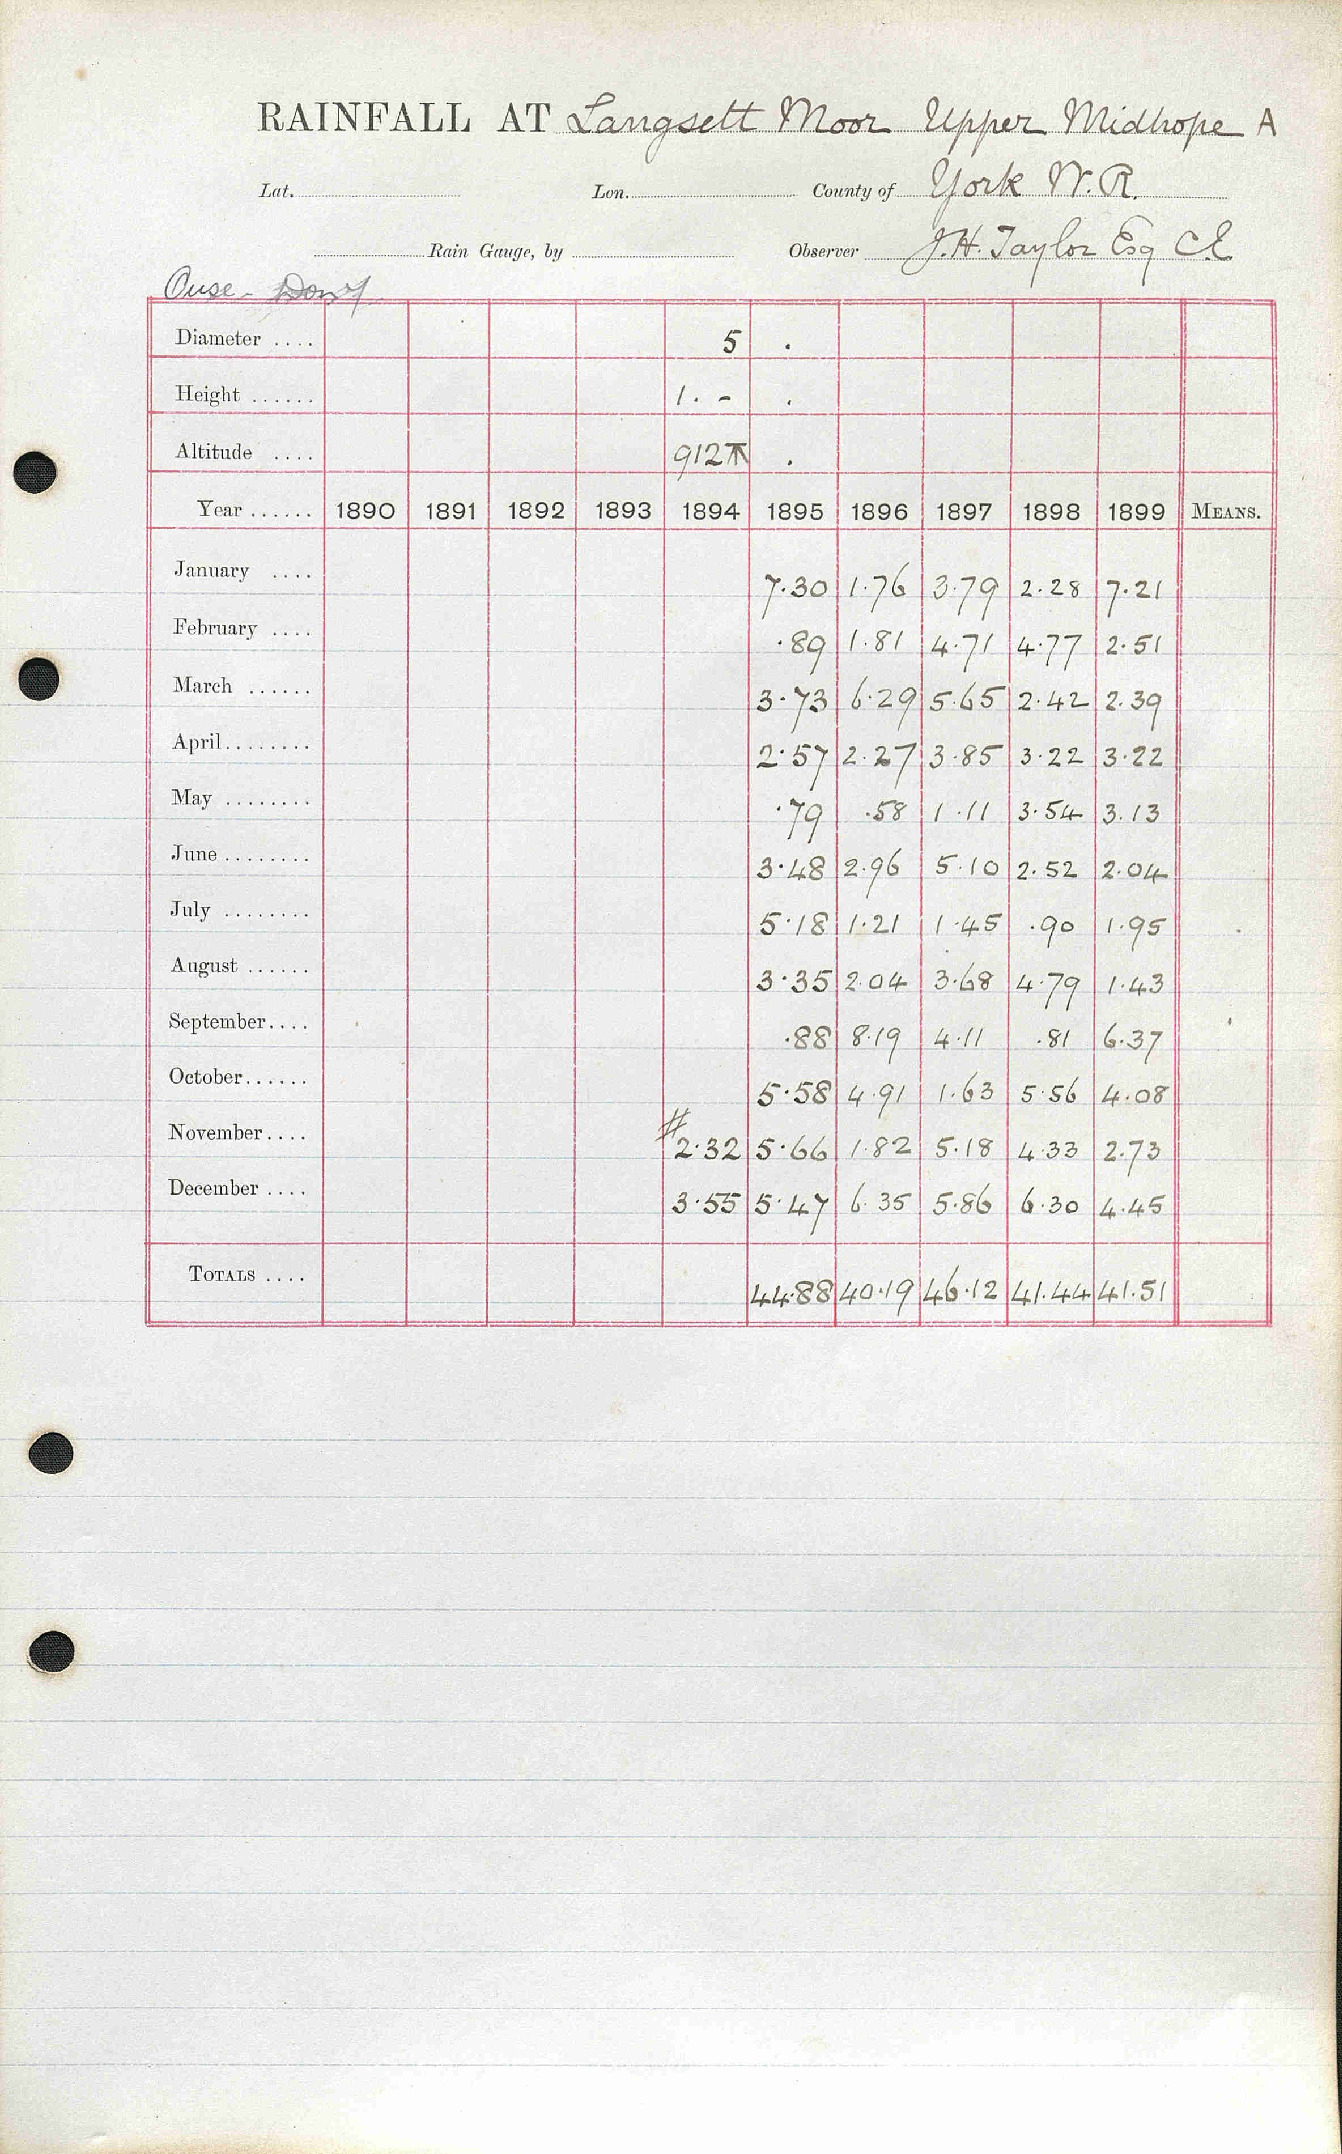 RAINFALL AT Langsett Moor Upper Midhope A
Lat. Lon. County of York W.R.
Rain Gauge, by Observer J.H. Taylor Esq CE
Ouse - Don
Diameter .... 5 .
Height ...... 1. - .
Altitude .... 912 .
Year ...... 1890 1891 1892 1893 1894 1895 1896 1897 1898 1899 MEANS.
January .... 7.30 1.76 3.79 2.28 7.21
February .... .89 1.81 4.71 4.77 2.51
March ...... 3.73 6.29 5.65 2.42 2.39
April........ 2.57 2.27 3.85 3.22 3.22
May ........ .79 .58 1.11 3.54 3.13
June ........ 3.48 2.96 5.10 2.52 2.04
July ........ 5.18 1.21 1.45 .90 1.95
August ...... 3.35 2.04 3.68 4.79 1.43
September.... .88 8.19 4.11 .81 6.37
October...... 5.58 4.91 1.63 5.56 4.08
November.... #2.32 5.66 1.82 5.18 4.33 2.73
December .... 3.55 5.47 6.35 5.86 6.30 4.45
TOTALS .... 44.88 40.19 46.12 41.44 41.51